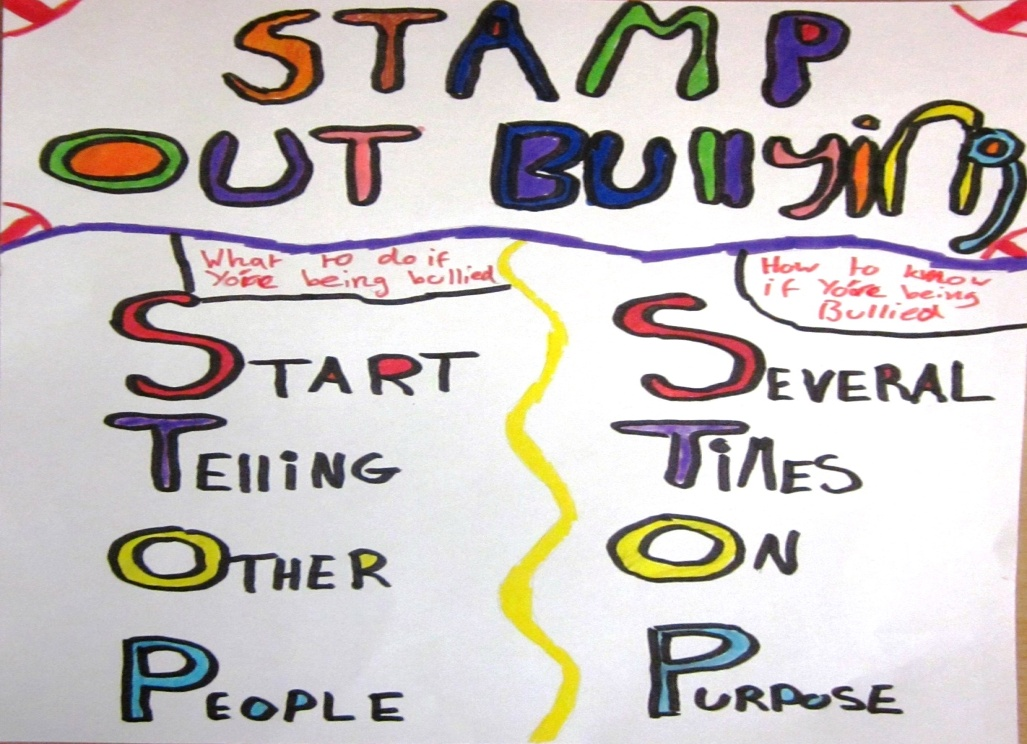 STAMP
OUT BUllying
What to do if
You're being bullied
START
TElliNG
OTHER
PEOPLE
How to know
if You're being
Bullied
SEVERAL
TiMES
ON
PURPOSE